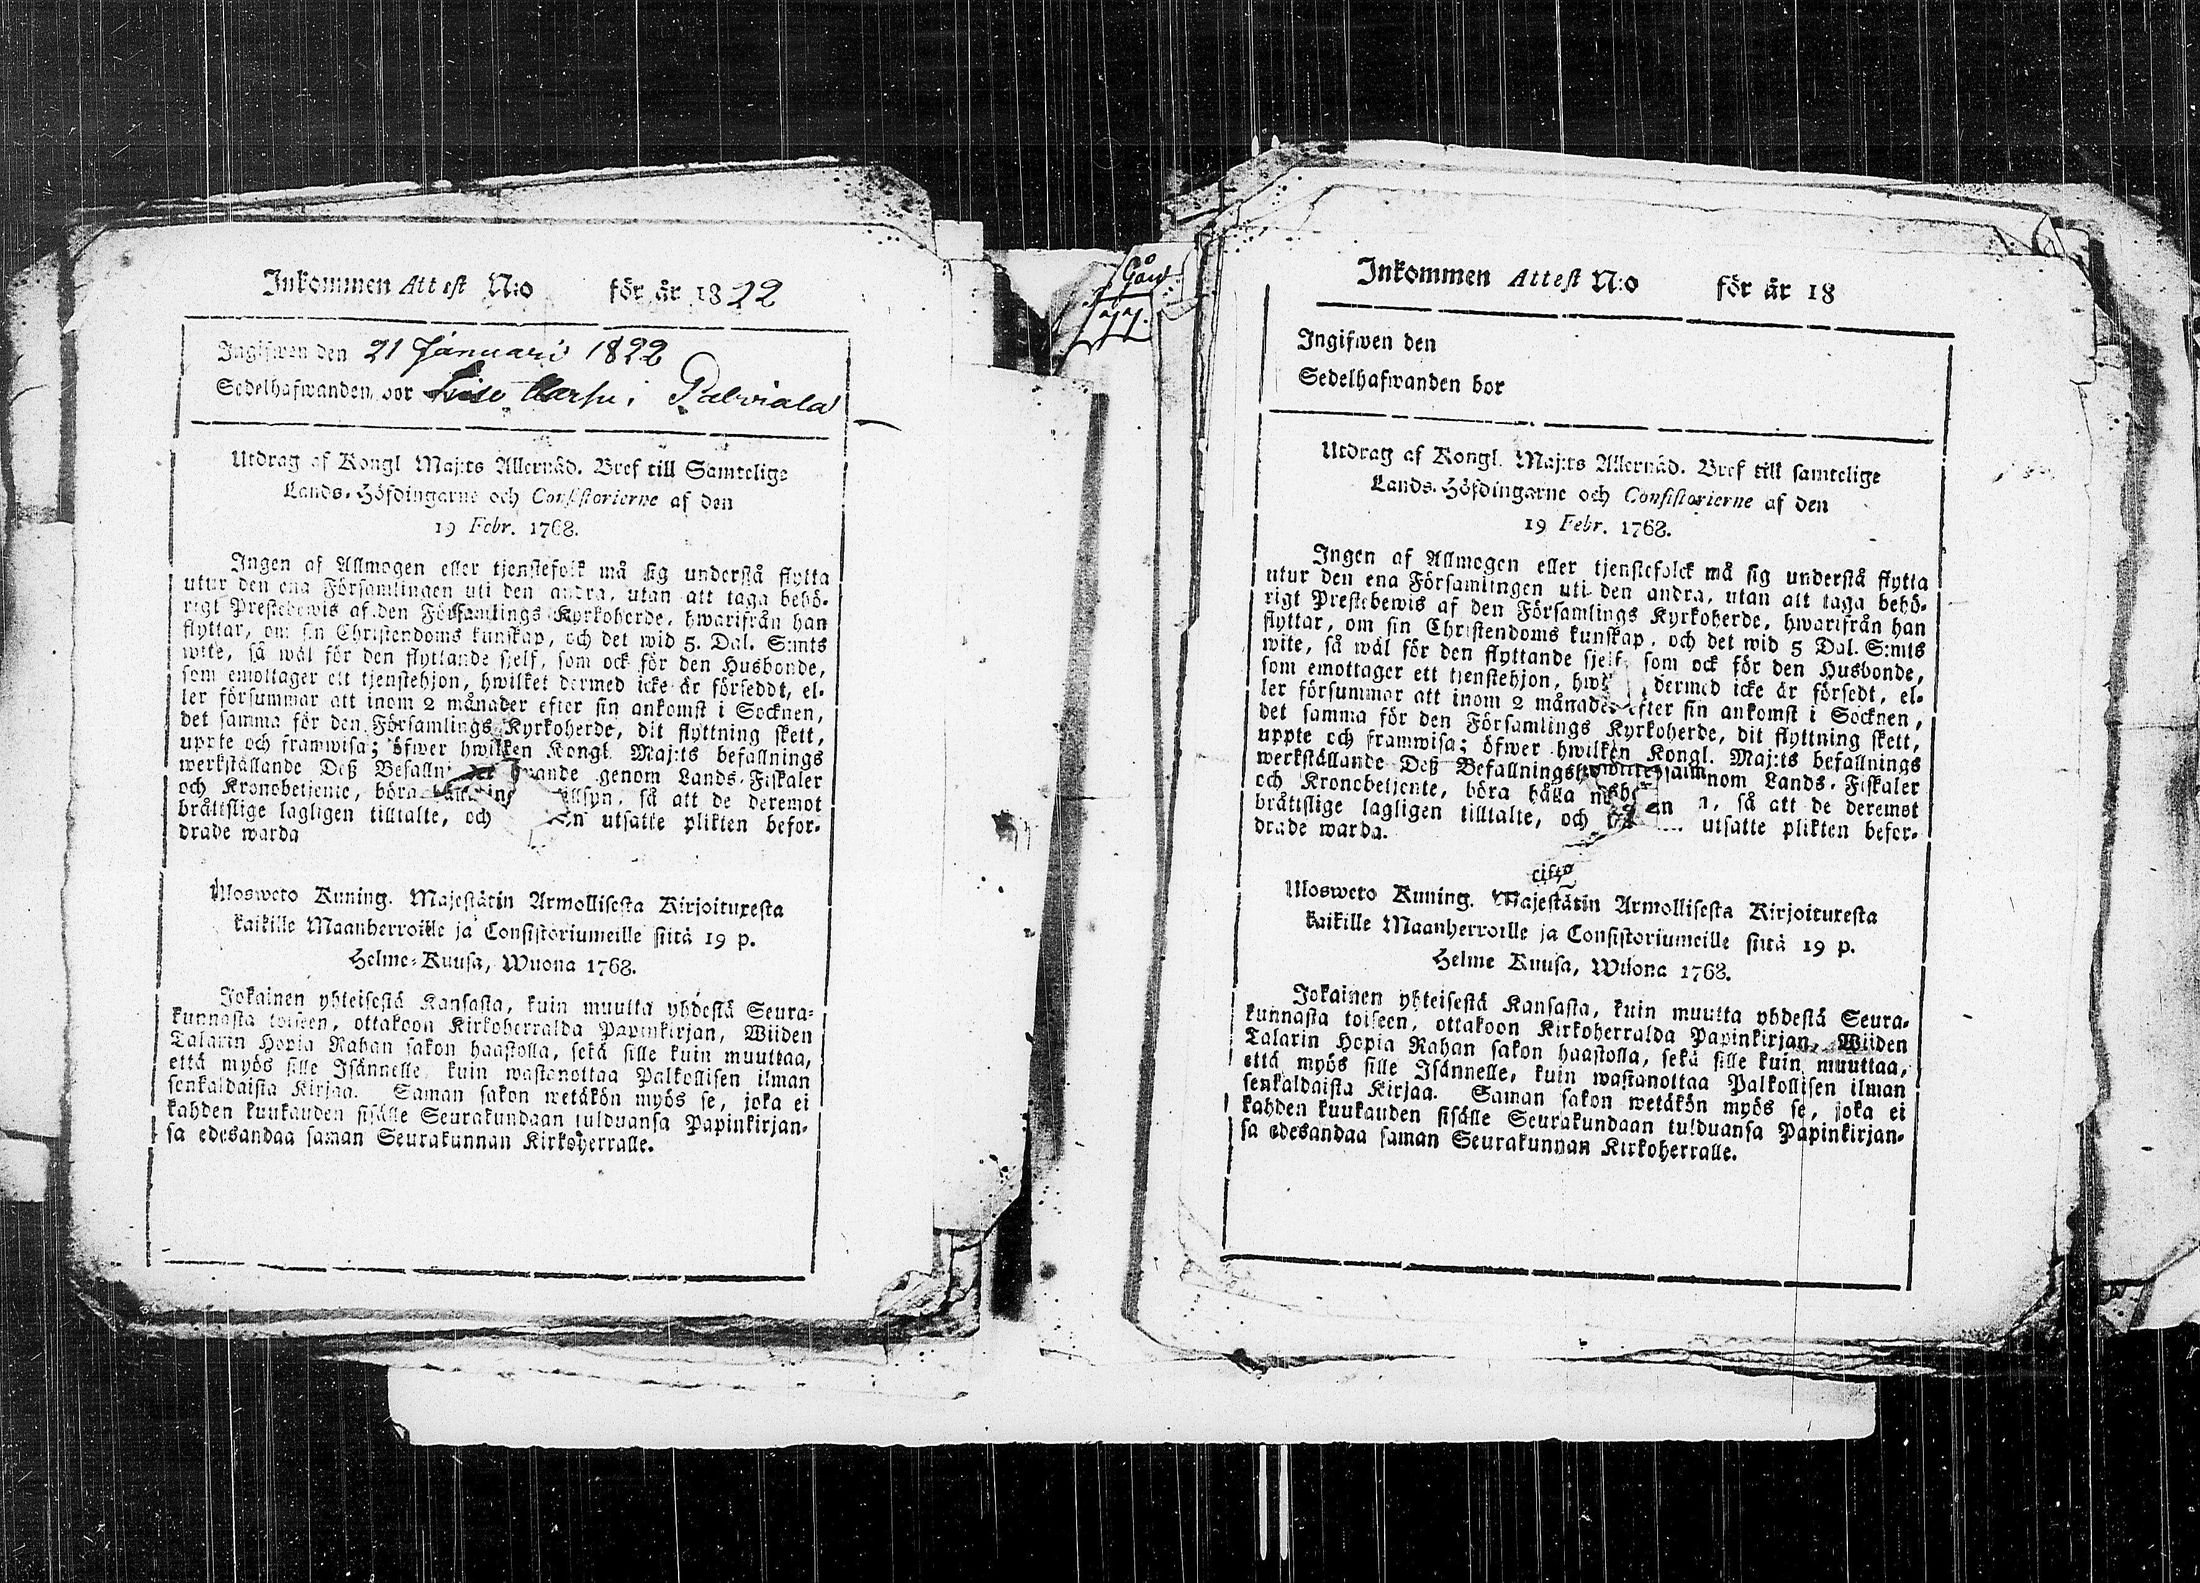 Inkommen Attest N:o för år 1822
Ingifwen den 21 Januari 1822
Sedelhafwanden bor i
Utdrag af Kongl Maj:ts Allernåd. Bref till Samtelige
Lands-Höfdingarne och Consistorierne af den
19 Febr. 1768.
Ingen af Allmogen eller tjenstefolk må sig understå flytta
utur den ena Församlingen uti den andra, utan att taga behö-
rigt Prestebewis af den Församlings Kyrkoherde, hwarifrån han
flyttar, om sin Christendoms kunskap, och det wid 5. Dal. S:mts
wite, så wäl för den flyttande sjelf, som ock för den Husbonde,
som emottager ett tjenstehjon, hwilket dermed icke är förseddt, el-
ler försummar att inom 2 månader efter sin ankomst i Socknen,
det samma för den Församlings Kyrkoherde, dit flyttning skett,
uppte och framwisa; öfwer hwilken Kongl Maj:ts befallnings
werkställande Deß genom Lands-Fiskaler
och Kronobetjente, böra så att de deremot
bråttslige lagligen tilltalte, och utsatte plikten befor-
drade warda
Ulosweto Kuning. Majestätin Armollisesta Kirjoituxesta
kaikille Maanherroille ja Consistoriumeille siitä 19 p.
Helme-Kuusa, Wuona 1768.
Jokainen yhteisestä Kansasta, kuin muutta yhdestä Seura-
kunnasta toiseen, ottakoon Kirkoherralda Papinkirjan, Wiiden
Talarin Hopia Rahan sakon haastolla, sekä sille kuin muuttaa,
että myös sille Isännelle, kuin wastanottaa Palkollisen ilman
senkaldaista Kirjaa. Saman sakon wetäkön myös se, joka ei
kahden kuukauden sisälle Seurakundaan tulduansa Papinkirjan-
sa edesandaa saman Seurakunnan Kirkoherralle.
77
Inkommen Attest N:o för år 18
Ingifwen den
Sedelhafwanden bor
Utdrag af Kongl. Maj:ts Allernåd. Bref till samtelige
Lands-Höfdingarne och Consistorierne af den
19 Febr. 1768.
Ingen af Allmogen eller tjenstefolck må sig understå flytta
utur den ena Församlingen uti den andra, utan att taga behö-
rigt Prestebewis af den Församlings Kyrkoherde, hwarifrån han
flyttar, om sin Christendoms kunskap, och det wid 5 Dal. S:mts
wite, så wäl för den flyttande sjelf, som ock för den Husbonde,
som emottager ett tjenstehjon, dermed icke är försedt, el-
ler försummar att inom 2 månader efter sin ankomst i Socknen,
det samma för den Församlings Kyrkoherde, dit flyttning skett,
uppte och framwisa; öfwer hwilken Kongl. Maj:ts befallnings
werkställande Deß Lands-Fiskaler
och Kronobetjente, böra hålla så att de deremot
bråttslige lagligen tilltalte, och utsatte plikten befor-
drade warda.
Ulosweto Kuning. Majestätin Armollisesta Kirjoituxesta
kaikille Maanherroille ja Consistoriumeille siitä 19 p.
Helme Kuusa, Wuona 1768.
Jokainen yhteisestä Kansasta, kuin muutta yhdestä Seura-
kunnasta toiseen, ottakoon Kirkoherralda Papinkirjan, Wiiden
Talarin Hopia Rahan sakon haastolla, sekä sille kuin muuttaa,
että myös sille Isännelle, kuin wastanottaa Palkollisen ilman
senkaldaista Kirjaa. Saman sakon wetäkön myös se, joka ei
kahden kuukauden sisälle Seurakundaan tulduansa Papinkirjan-
sa edesandaa saman Seurakunnan Kirkoherralle.